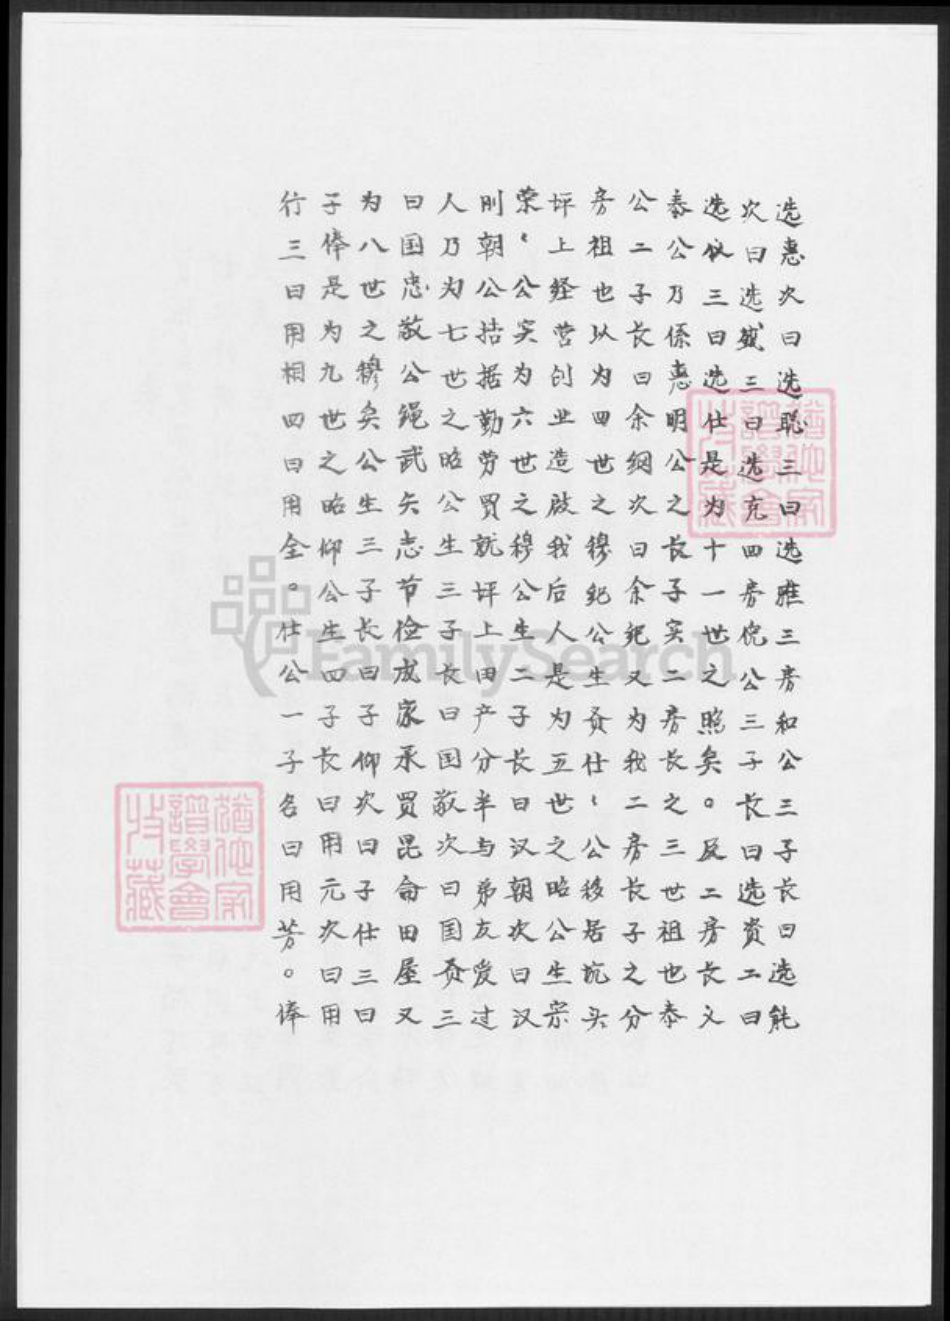 选惠次曰选聪三曰选雅三房和公三子长曰选能
次曰选盛三曰选充四房倪公三子长曰选资二曰
选仪三曰选仕是为十一世之照矣。反二房长文
泰公乃係惠明公之长子实二房长之三世祖也泰
公二子长曰余纲次曰余纪又为我二房长子之分
房祖也以为四世之穆纪公生贡仕〻公移居坑头
坪上经营创业造啟我后人是为五世之昭公生宗
荣〻公实为六世之穆公生二子长曰汉朝次曰汉
刚朝公拮据勤劳置就坪上田产分半与弟友爱过
人乃为七世之昭公生三子长曰国敬次曰国贡三
曰国忠敬公绳武矢志节俭成家承買昆侖田屋又
为八世之穆矣公生三子长曰子仰次曰子仕三曰
子俸是为九世之昭仰公生四子长曰用元次曰用
行三曰用相四曰用全。仕公一子名曰用芳。俸
猶他家譜學會收藏
猶他家譜學會收藏
FamilySearch